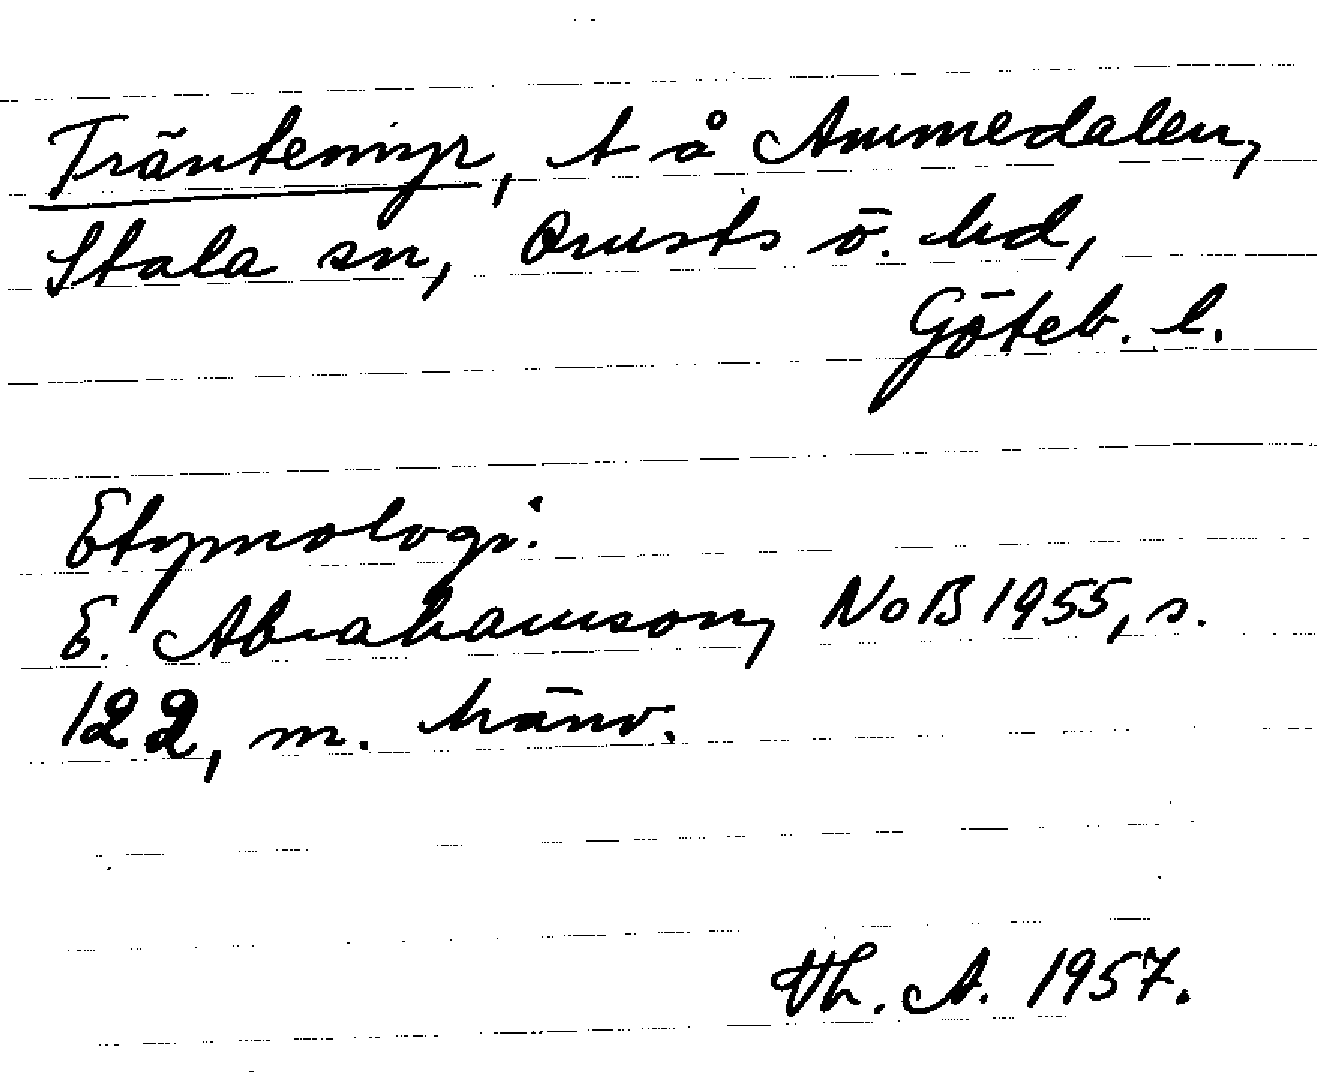 Träntemyr, t å Ammedalen,
Stala sn, Orusts ö. hd,
Göteb. l.
Etymologi:
E. Abrahamson, NoB 1955, s.
122, m. hänv.
Th. A. 1957.